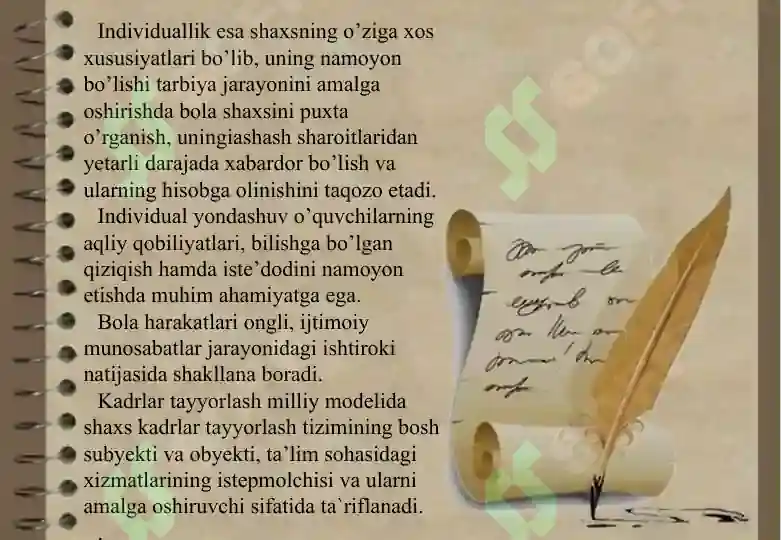 Individuallik esa shaxsning o’ziga xos
xususiyatlari bo’lib, uning namoyon
bo’lishi tarbiya jarayonini amalga
oshirishda bola shaxsini puxta
o’rganish, uningiashash sharoitlaridan
yetarli darajada xabardor bo’lish va
ularning hisobga olinishini taqozo etadi.
Individual yondashuv o’quvchilarning
aqliy qobiliyatlari, bilishga bo’lgan
qiziqish hamda iste’dodini namoyon
etishda muhim ahamiyatga ega.
Bola harakatlari ongli, ijtimoiy
munosabatlar jarayonidagi ishtiroki
natijasida shakllana boradi.
Kadrlar tayyorlash milliy modelida
shaxs kadrlar tayyorlash tizimining bosh
subyekti va obyekti, ta’lim sohasidagi
xizmatlarining istepmolchisi va ularni
amalga oshiruvchi sifatida ta`riflanadi.
.